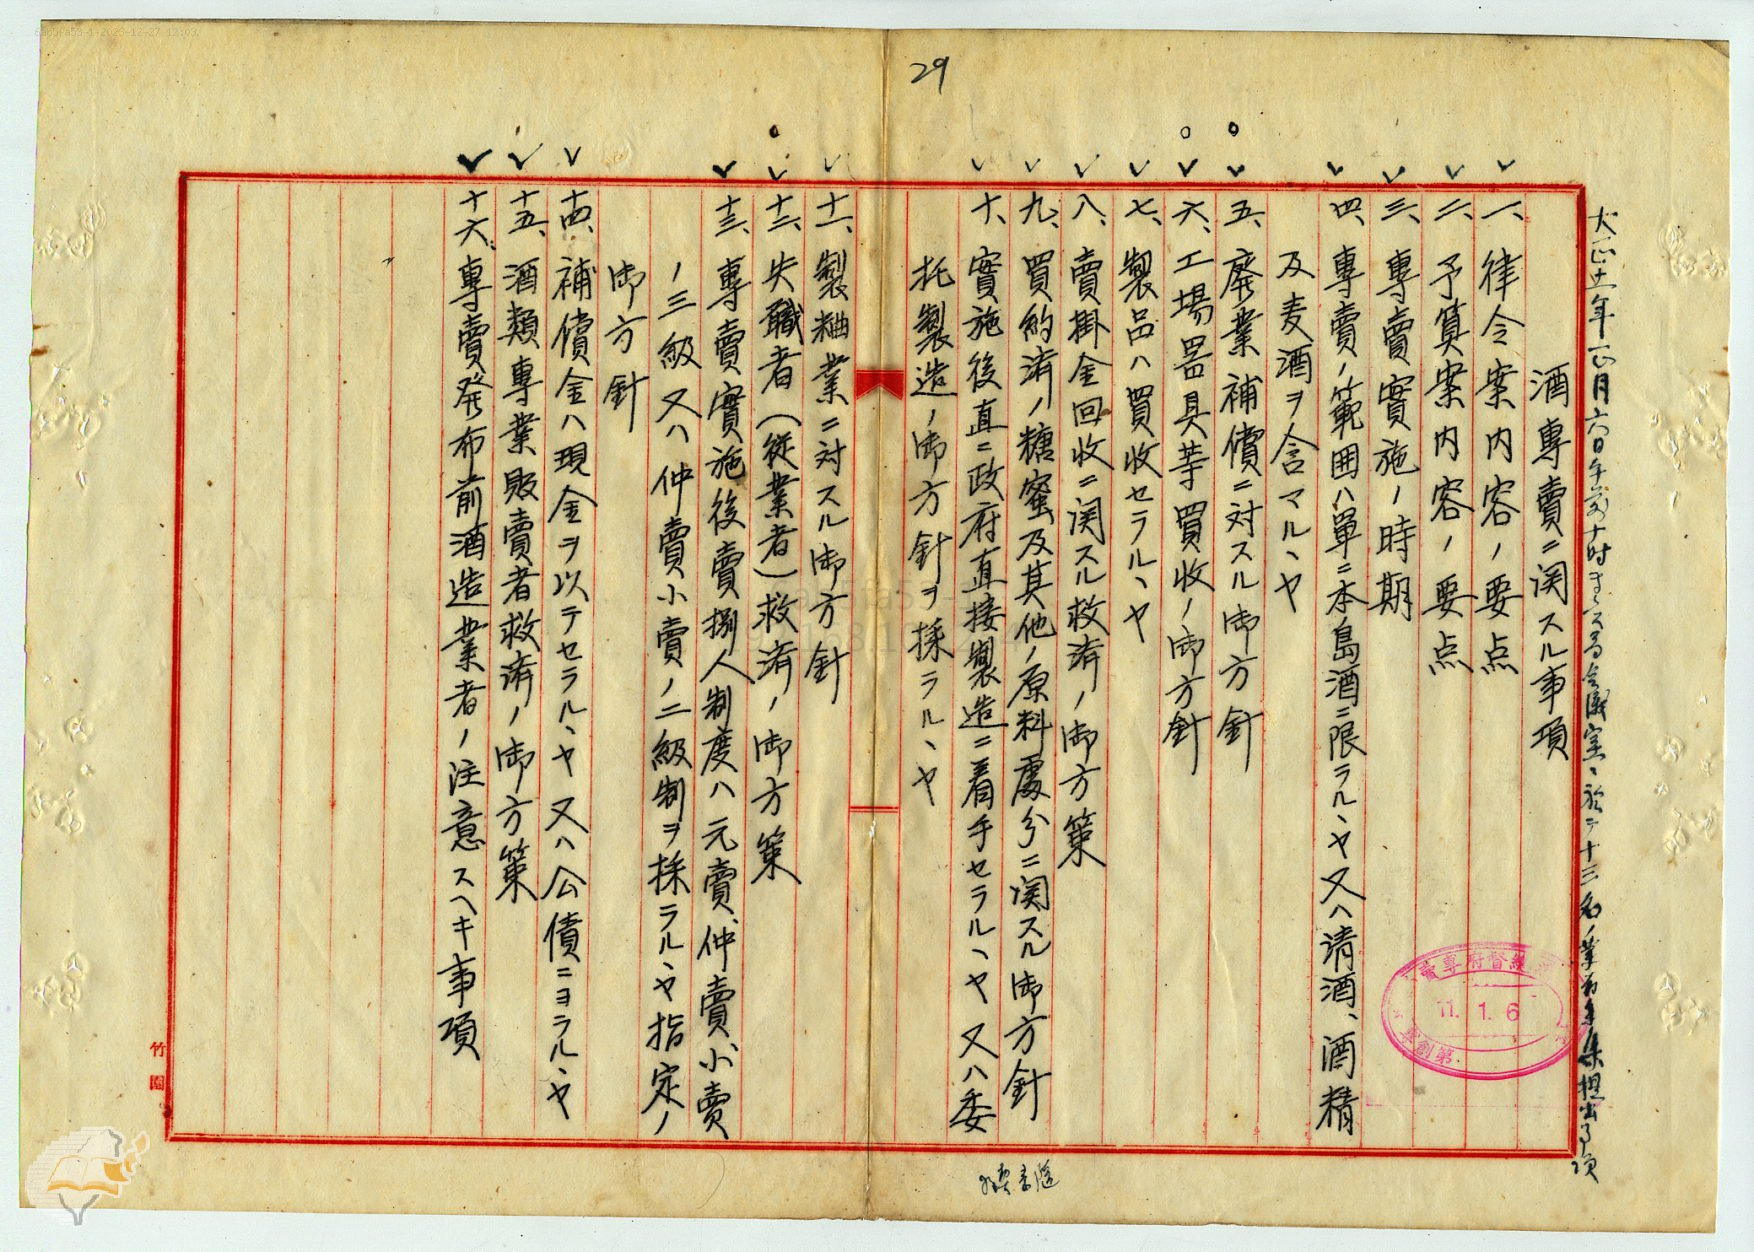 29
大正十一年一月六日午前十時
酒專賣ニ関スル事項
一、律令案内容ノ要点
二、予算案内容ノ要点
三、專賣實施ノ時期
四、專賣ノ範囲ハ單ニ本島酒ニ限ラルヽヤ又ハ清酒、酒精
及麦酒ヲ含マルヽヤ
五、廃業補償ニ対スル御方針
六、工場器具等買收ノ御方針
七、製品ハ買收セラルヽヤ
八、賣掛金回收ニ関スル救済ノ御方策
九、買約済ノ糖蜜及其他ノ原料處分ニ関スル御方針
十、實施後直ニ政府直接製造ニ着手セラルヽヤ又ハ委
托製造ノ御方針ヲ採ラルヽヤ
十一、製粬業ニ対スル御方針
十二、失職者(従業者)救済ノ御方策
十三、專賣實施後賣捌人制度ハ元賣、仲賣、小賣
ノ三級又ハ仲賣小賣ノ二級制ヲ採ラルヽヤ指定ノ
御方針
十四、補償金ハ現金ヲ以テセラルヽヤ又ハ公債ニヨラルヽヤ
十五、酒類專業販賣者救済ノ御方策
十六、專賣発布前酒造業者ノ注意スヘキ事項
府督總
11. 1. 6
竹園